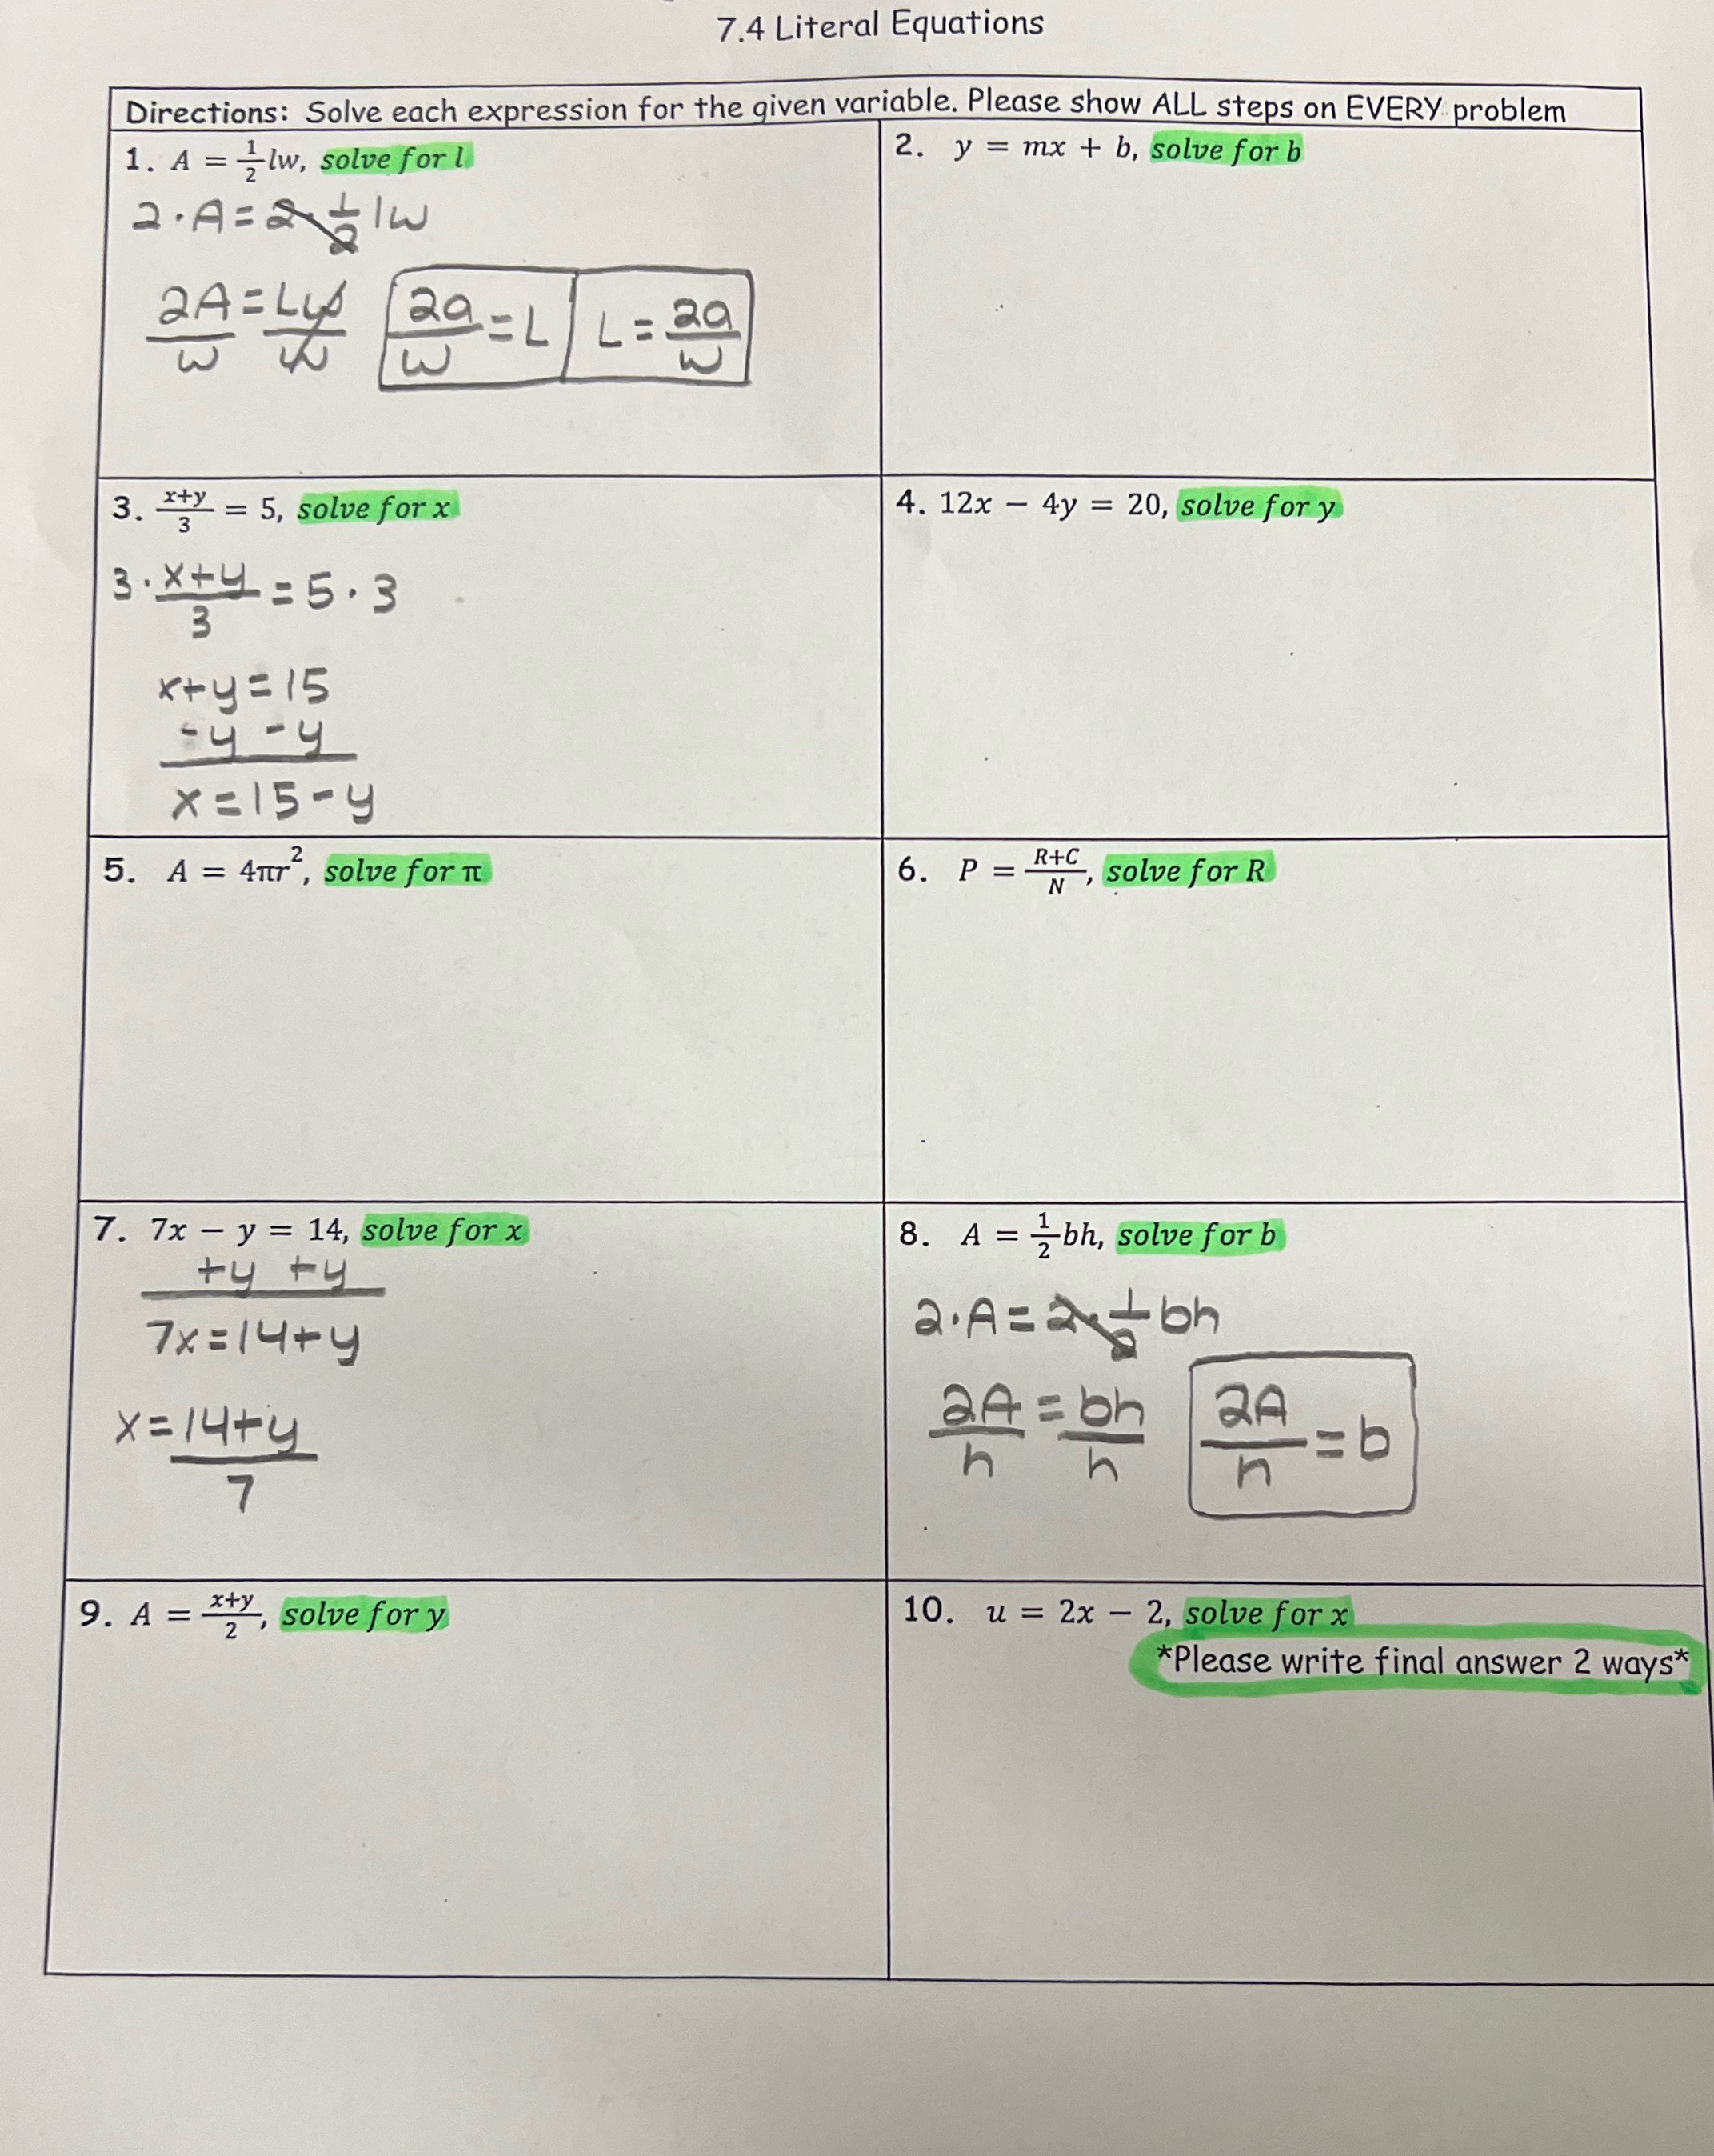 7.4 Literal Equations
Directions: Solve each expression for the given variable. Please show ALL steps on EVERY problem
1. A = 1/2 lw, solve for l
2 · A = 2 · 1/2 lw
2A/w = Lw/w
2a/w = L
L = 2a/w
2. y = mx + b, solve for b
3. (x+y)/3 = 5, solve for x
3 · (x+y)/3 = 5 · 3
x+y = 15
-y -y
x = 15 - y
4. 12x − 4y = 20, solve for y
5. A = 4πr², solve for π
6. P = (R+C)/N, solve for R
7. 7x − y = 14, solve for x
+y +y
7x = 14 + y
x = (14+y)/7
8. A = 1/2 bh, solve for b
2 · A = 2 · 1/2 bh
2A/h = bh/h
2A/h = b
9. A = (x+y)/2, solve for y
10. u = 2x − 2, solve for x
*Please write final answer 2 ways*